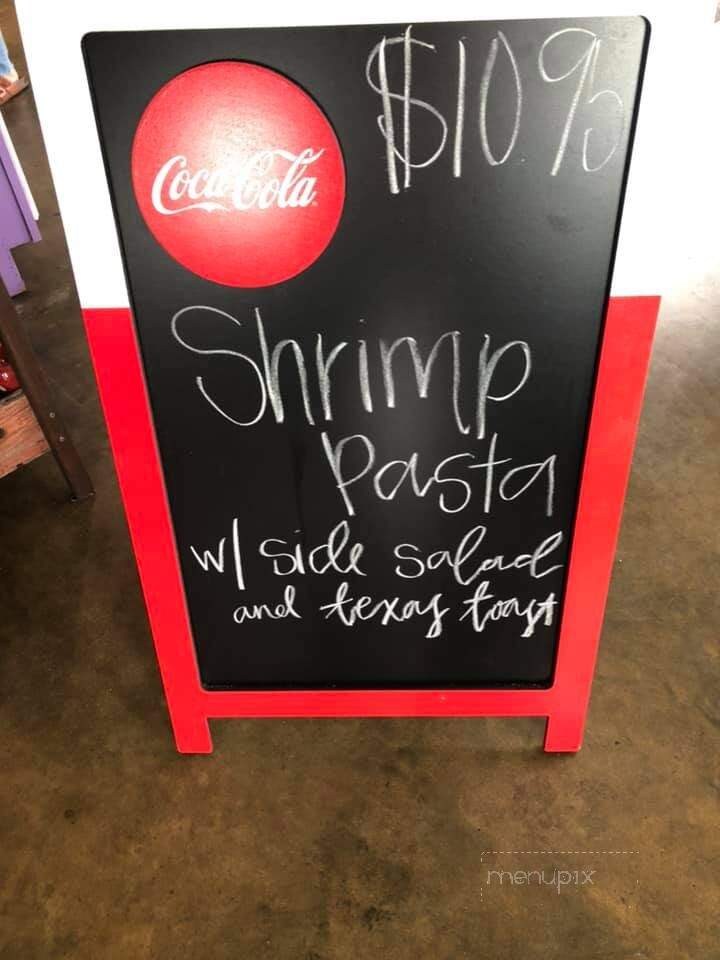 Coca-Cola
$10 95
Shrimp
Pasta
w/ side salad
and texas toast
menupix